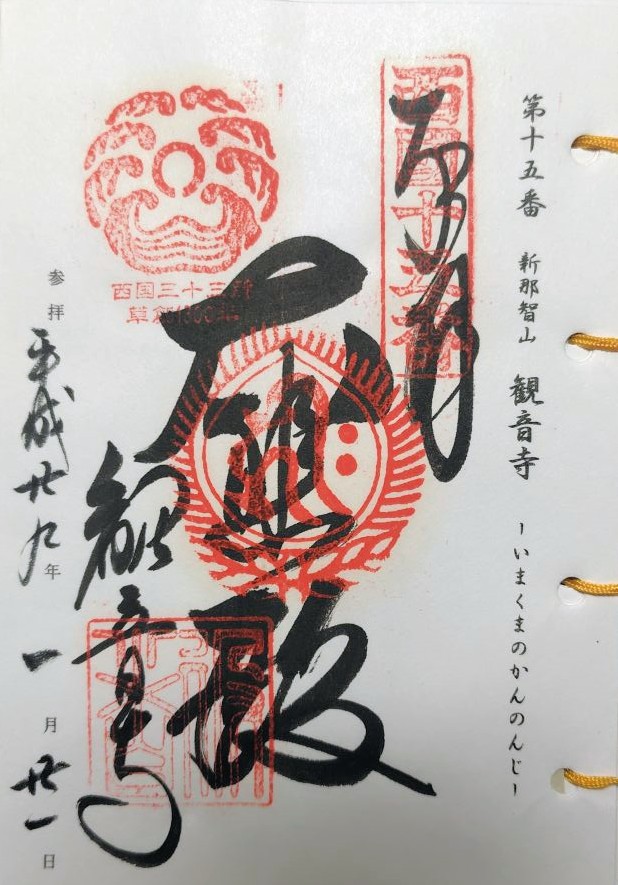 第十五番 新那智山 観音寺 ーいまくまのかんのんじー
奉拝
西国十五番
大悲殿
観音寺
西国三十三所
草創1300年
参拝 平成廿九年 一月廿一日